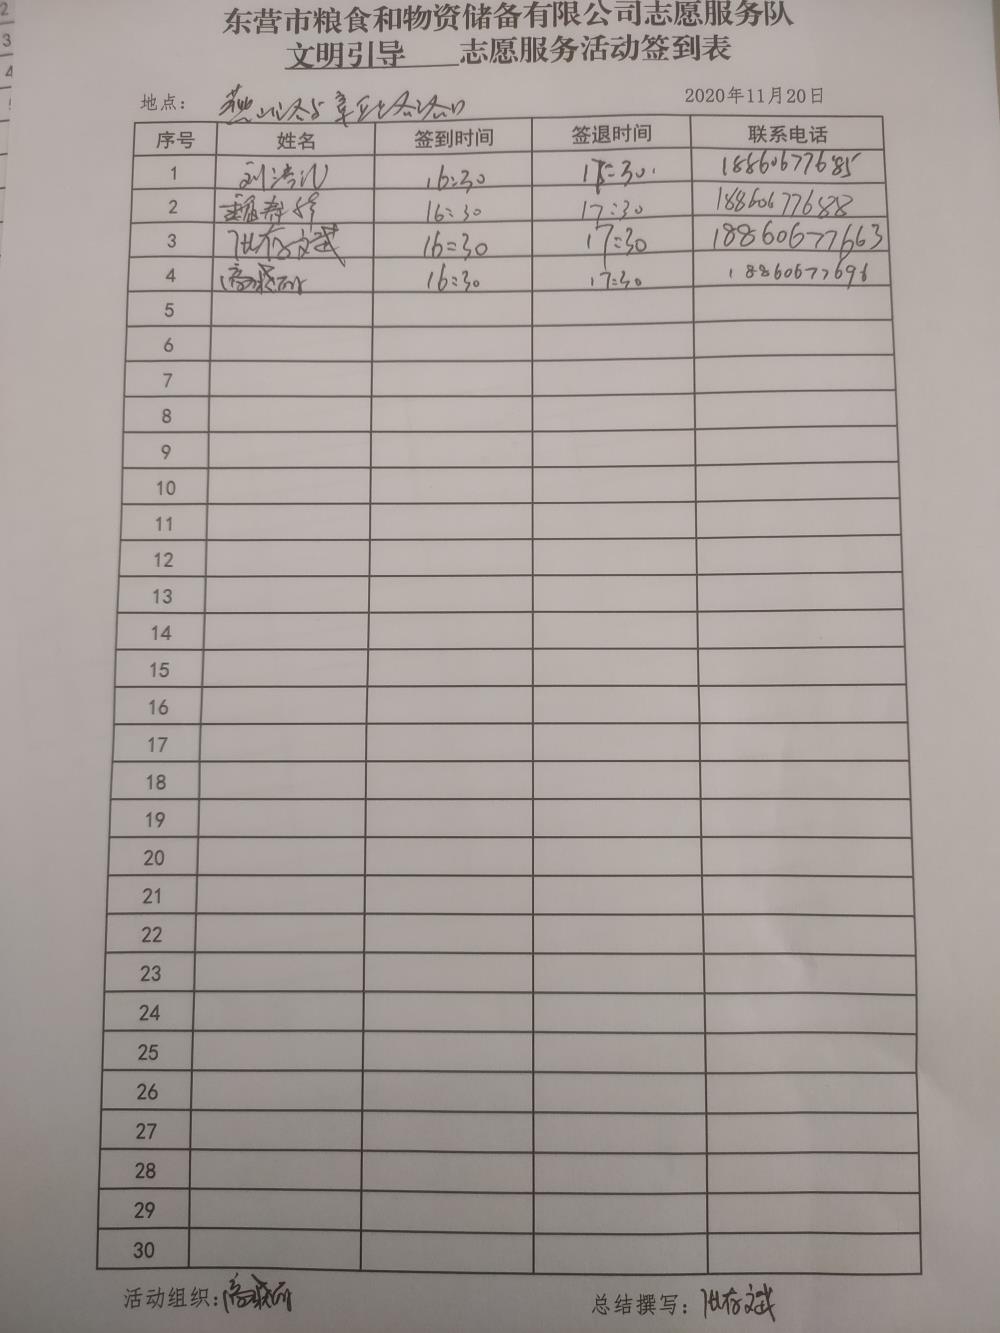 东营市粮食和物资储备有限公司志愿服务队
文明引导 志愿服务活动签到表
地点： 2020年11月20日
序号 姓名 签到时间 签退时间 联系电话
1 16:30 17:30 18860677685
2 16:30 17:30 18860677688
3 16:30 17:30 18860677663
4 16:30 17:30 18860677696
5
6
7
8
9
10
11
12
13
14
15
16
17
18
19
20
21
22
23
24
25
26
27
28
29
30
活动组织: 总结撰写:
2
3
4